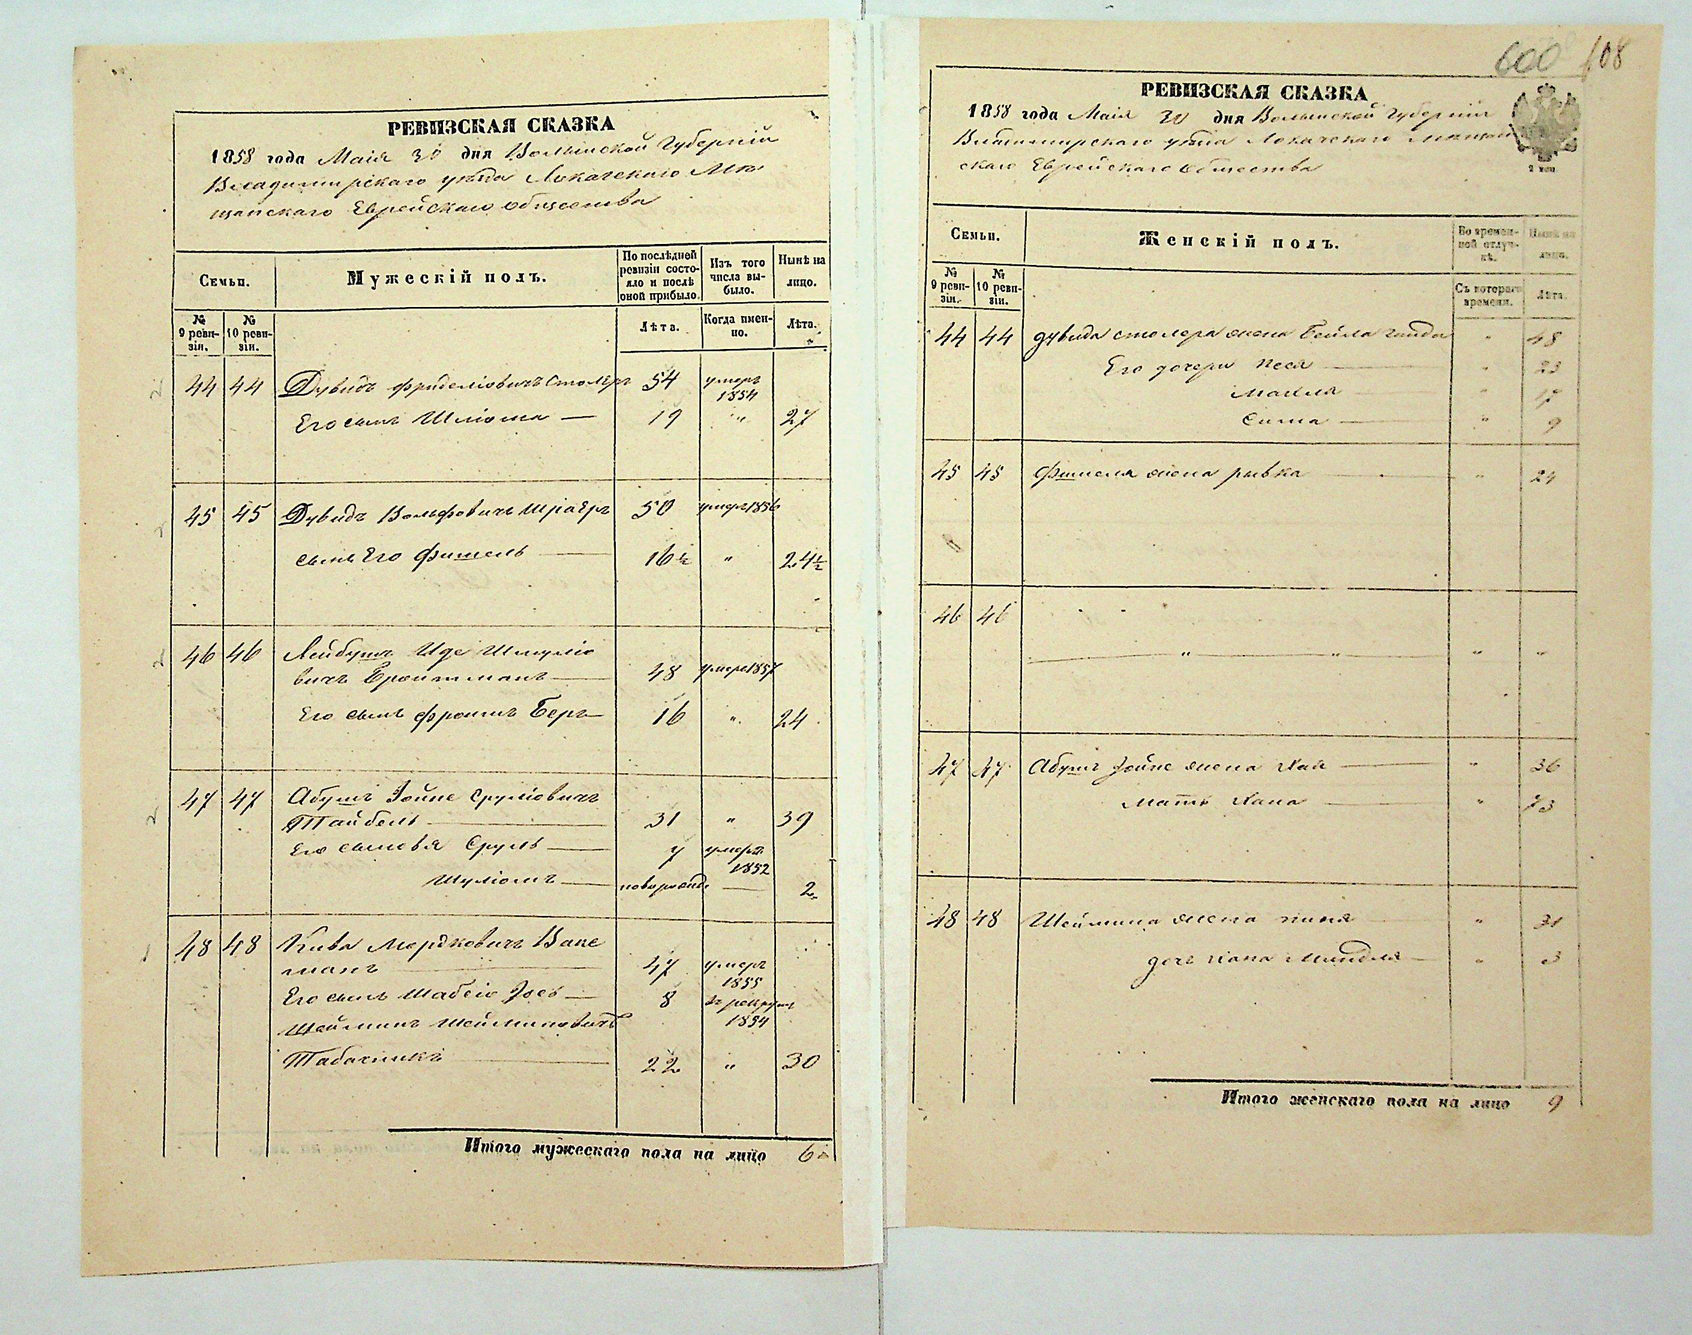 РЕВИЗСКАЯ СКАЗКА
1858 года Маія 30 дня Волынской Губерніи
Владимирскаго уѣзда Локачскаго Мѣ
щанскаго Еврейскаго общества
Семьи.
Мужескій полъ.
По послѣдней ревизіи состояло и послѣ оной прибыло.
Изъ того числа выбыло.
Нынѣ на лицо.
№ 9 ревизіи.
№ 10 ревизіи.
Лѣта.
Когда именно.
Лѣта.
44 44 Дувидъ Фриделіовичъ Столеръ 54 умеръ 1854
Его сынъ Шліома — 19 " 27
45 45 Дувидъ Вольфовичъ 50 умеръ 1856
сынъ Его Фишель — 16½ " 24½
46 46 Лейбушъ Иде Шмуліо
вичъ — 48 умеръ 1857
Его сынъ Фроимъ Беръ — 16 " 24
47 47 Абушъ Іойне Сруліовичъ
Тайбель — 31 " 39
Его сыновья Сруль — 7 умеръ 1852
Шуліомъ — новорожд. — 2
48 48 Кива Мордковичъ Ваке
манъ — 47 умеръ 1855
Его сынъ Шабсіо Іось — 8 въ рекруты 1854
Шейминъ Шейминовичъ
Табачникъ — 22 " 30
Итого мужескаго пола на лицо 6
600 108
РЕВИЗСКАЯ СКАЗКА
1858 года Маія 30 дня Волынской Губерніи
Владимирскаго уѣзда Локачскаго Мещан
скаго Еврейскаго общества
Семьи.
Женскій полъ.
Во временной отлучкѣ.
Нынѣ на лицо.
№ 9 ревизіи.
№ 10 ревизіи.
Съ котораго времени.
Лѣта.
44 44 Дувида Столера жена Бейла " 48
Его дочери Песя " 23
Маиля — " 17
Сима — " 9
45 45 Фишеля жена Рывка — " 24
46 46
" " " "
47 47 Абушъ Іойне жена Хая — " 36
Мать Хана — " 73
48 48 Шеймина жена " 31
дочь Хана Миндля — " 3
Итого женскаго пола на лицо 9